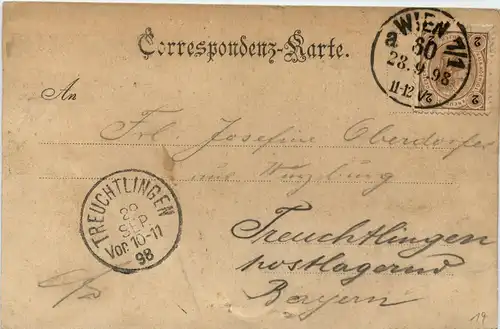 Correspondenz-Karte.
a WIEN 1/1
30
28.9.98
11-12 V
2 2
An
Frl. Josefine Oberdorfer
aus Würzburg
TREUCHTLINGEN
29
SEP
Vor. 10-11
98
Treuchtlingen
postlagernd
Bayern
19